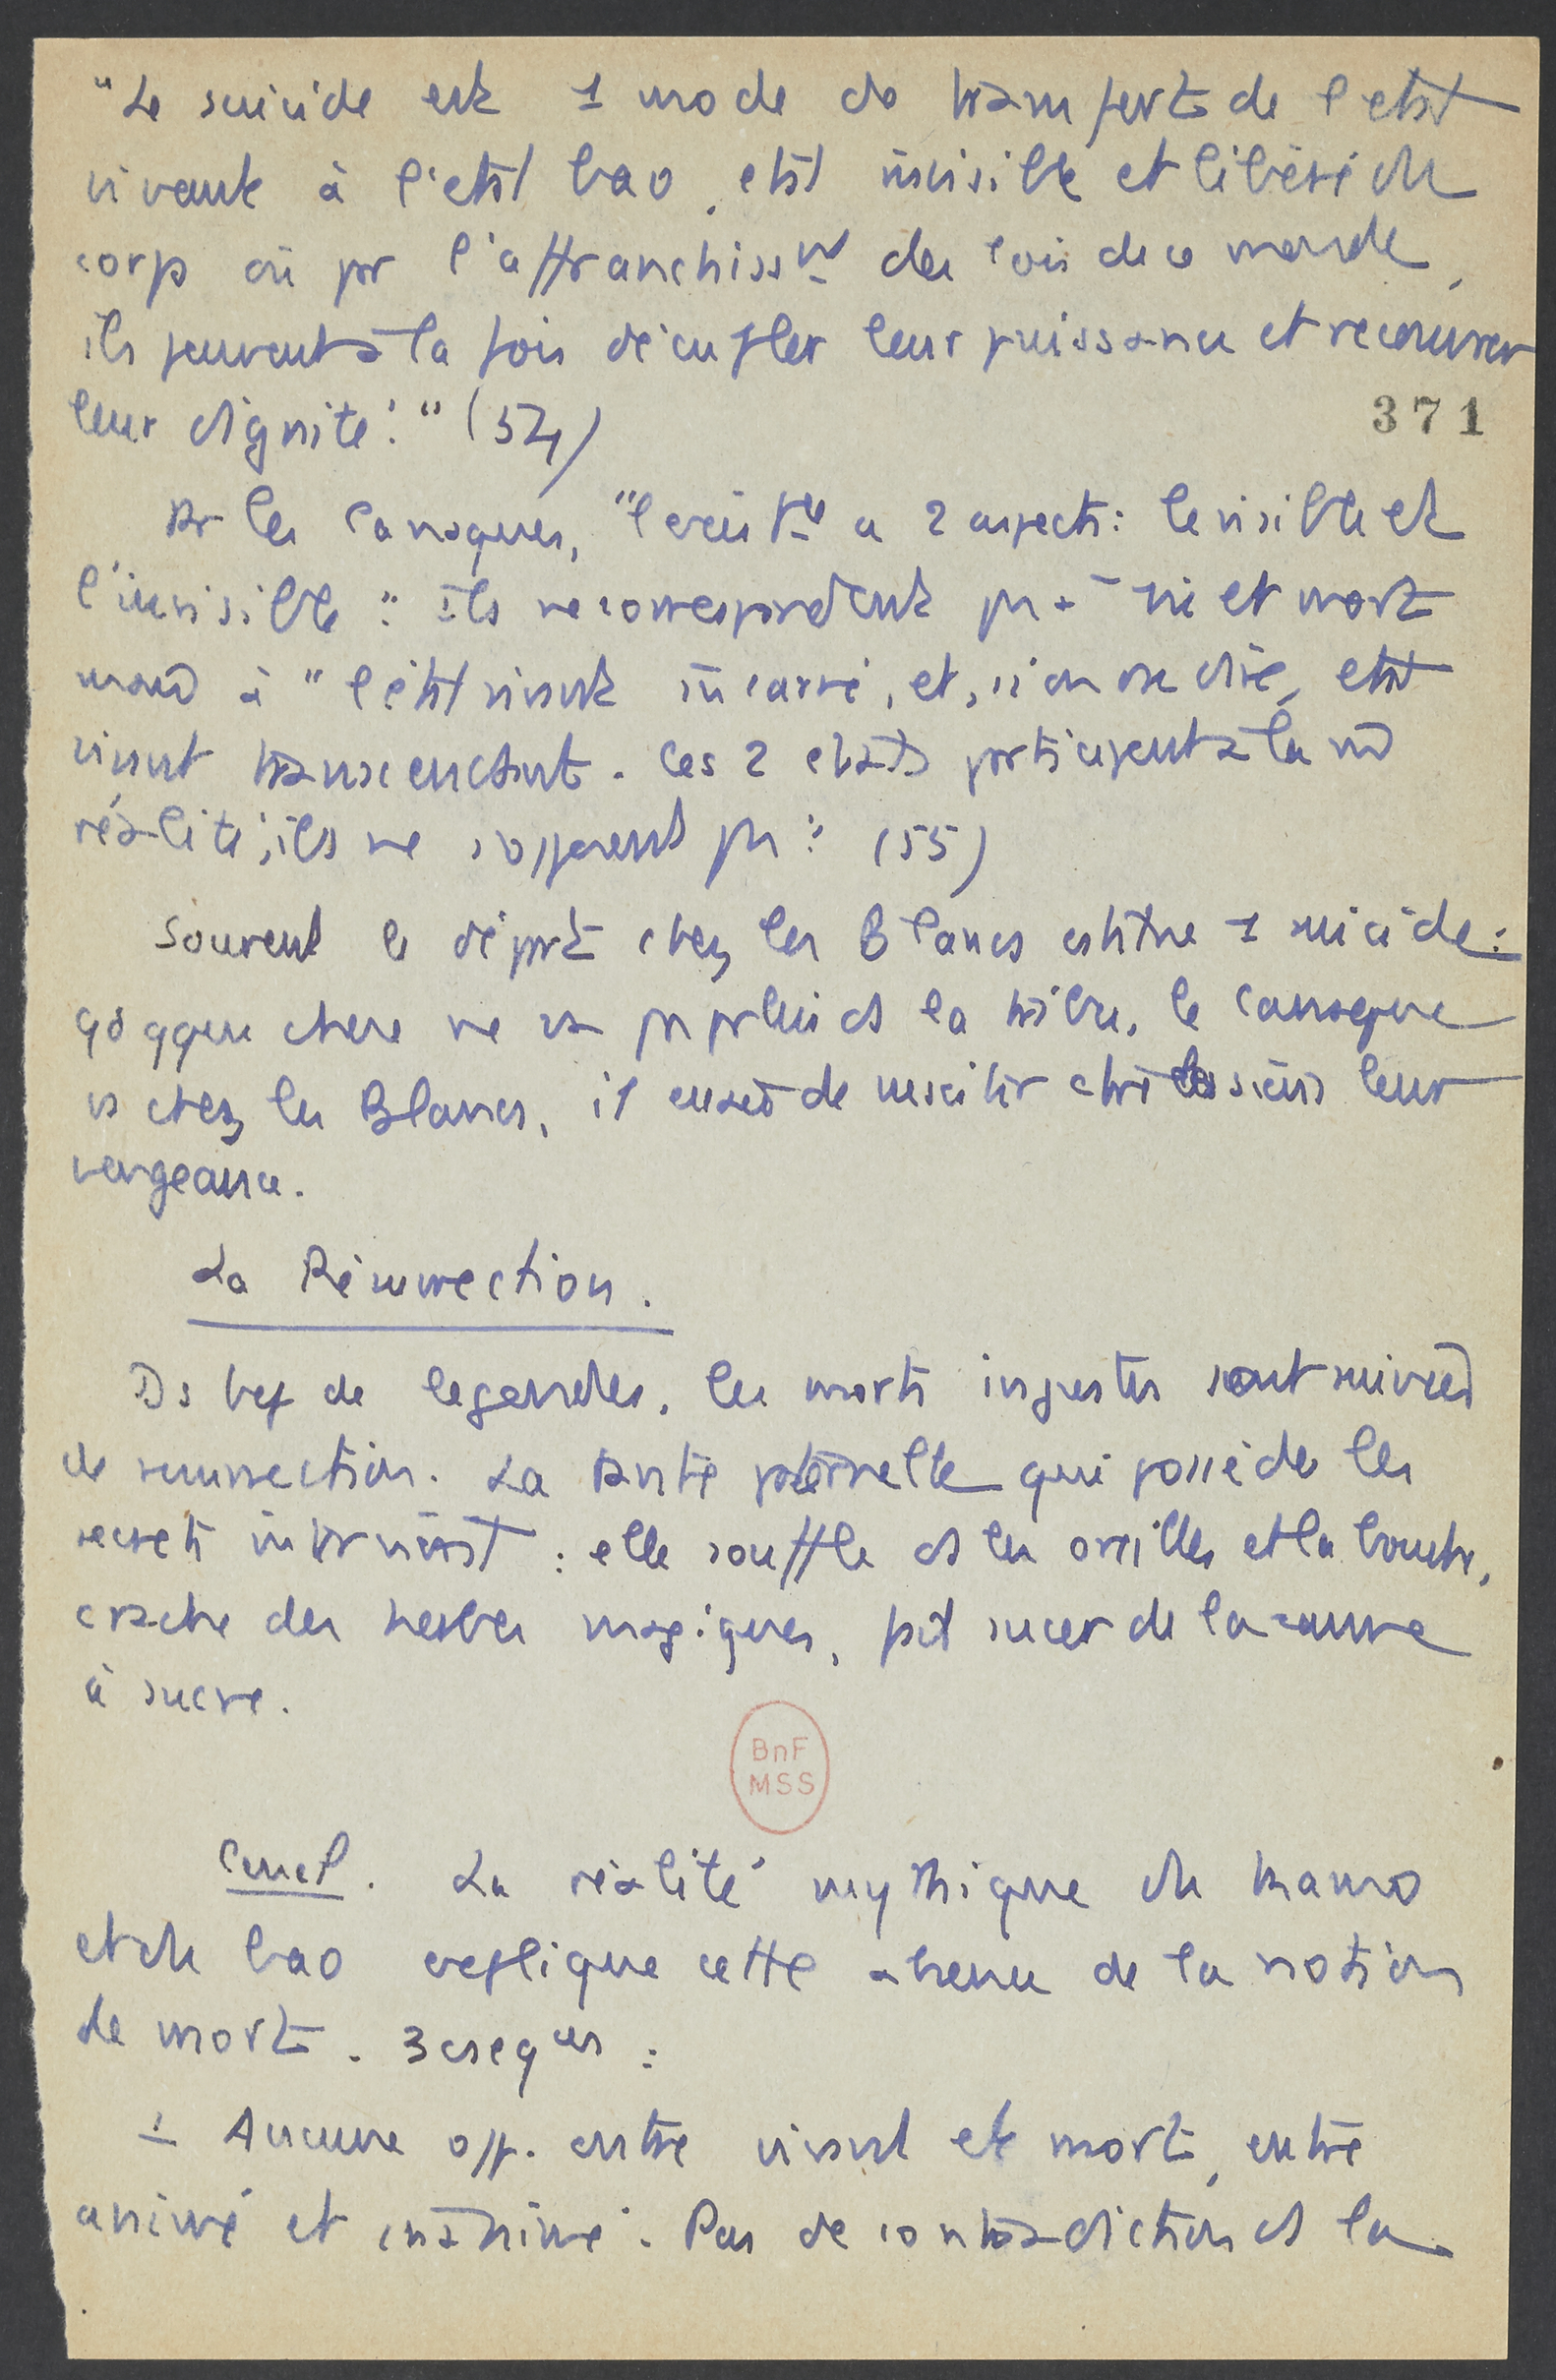 "Le suicide est 1 mode de transfert de l'etat
vivant à l'etat bao, etat invisible et libéré du
corps où pr l'affranchissnt des lois de ce monde,
ils peuvent à la fois décupler leur puissance et recouvrer
leur dignité." (54)
371
Pr les Canaques, "l'existce a 2 aspects: le visible et
l'invisible": ils ne correspondent pas à vie et mort
mais à "l'état vivant incarné, et, si on ose dire, etat
vivant transcendant. Ces 2 etats participent à la m̂
réalité; ils ne s'opposent pas". (55)
Souvent le départ chez les Blancs est être 1 suicide:
qd qque chose ne va pas pr lui ds la tribu, le Canaque
va chez les Blancs, il essaie de susciter chez les siens leur
vengeance.
La Résurrection.
Ds bcp de legendes, les morts injustes sont suivies
de resurrection. La tante paternelle qui possède les
secrets intervient: elle souffle ds les oreilles et la bouche,
crache des herbes magiques, fait sucer de la canne
à sucre.
BnF
MSS
Concl. La réalité mythique du kamo
et du bao explique cette absence de la notion
de mort. 3 cseqces:
1 Aucune opp. entre vivant et mort, entre
animé et inanimé. Pas de contradiction ds la